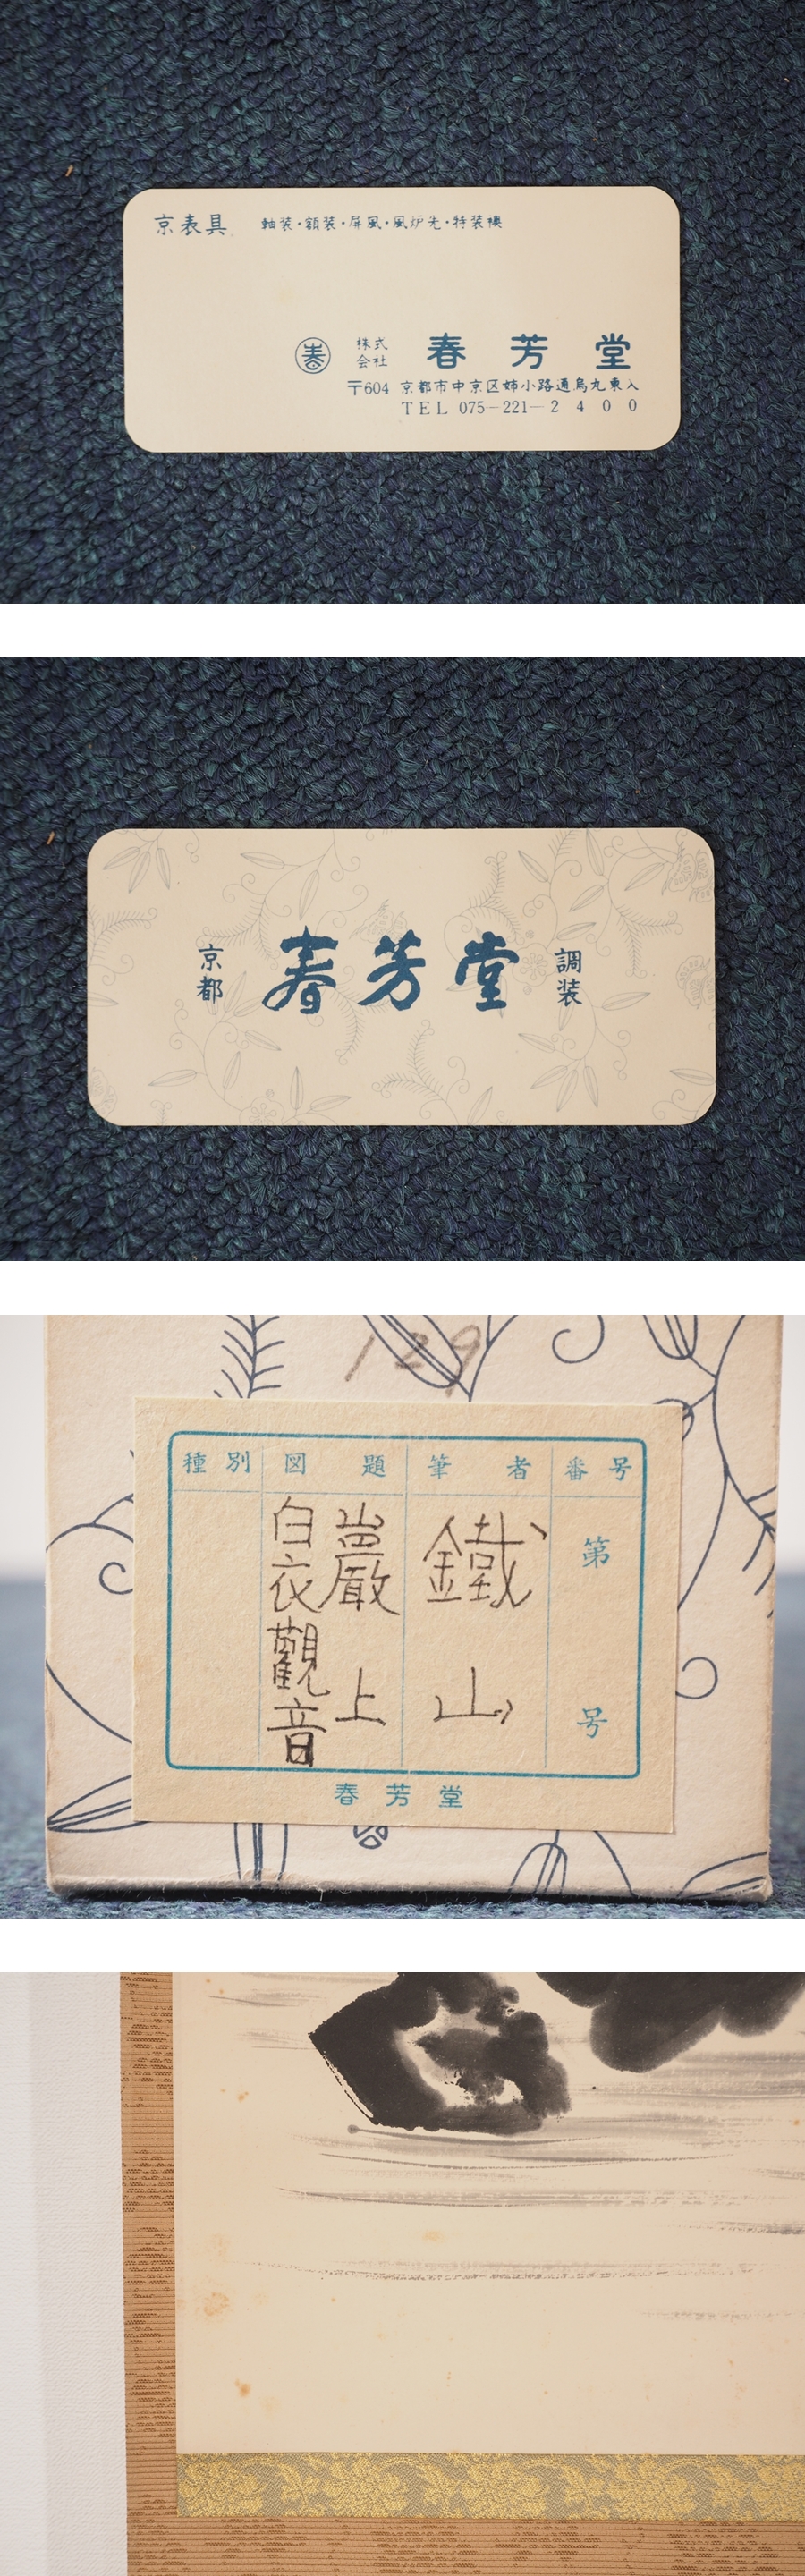 京表具 軸装・額装・屏風・風炉先・特装襖
春
株式
会社
春芳堂
〒604 京都市中京区姉小路通烏丸東入
TEL 075-221-2400
京都
春芳堂
調装
129
種別 図題 筆者 番号
第 号
鐵山
巖上
白衣觀音
春芳堂